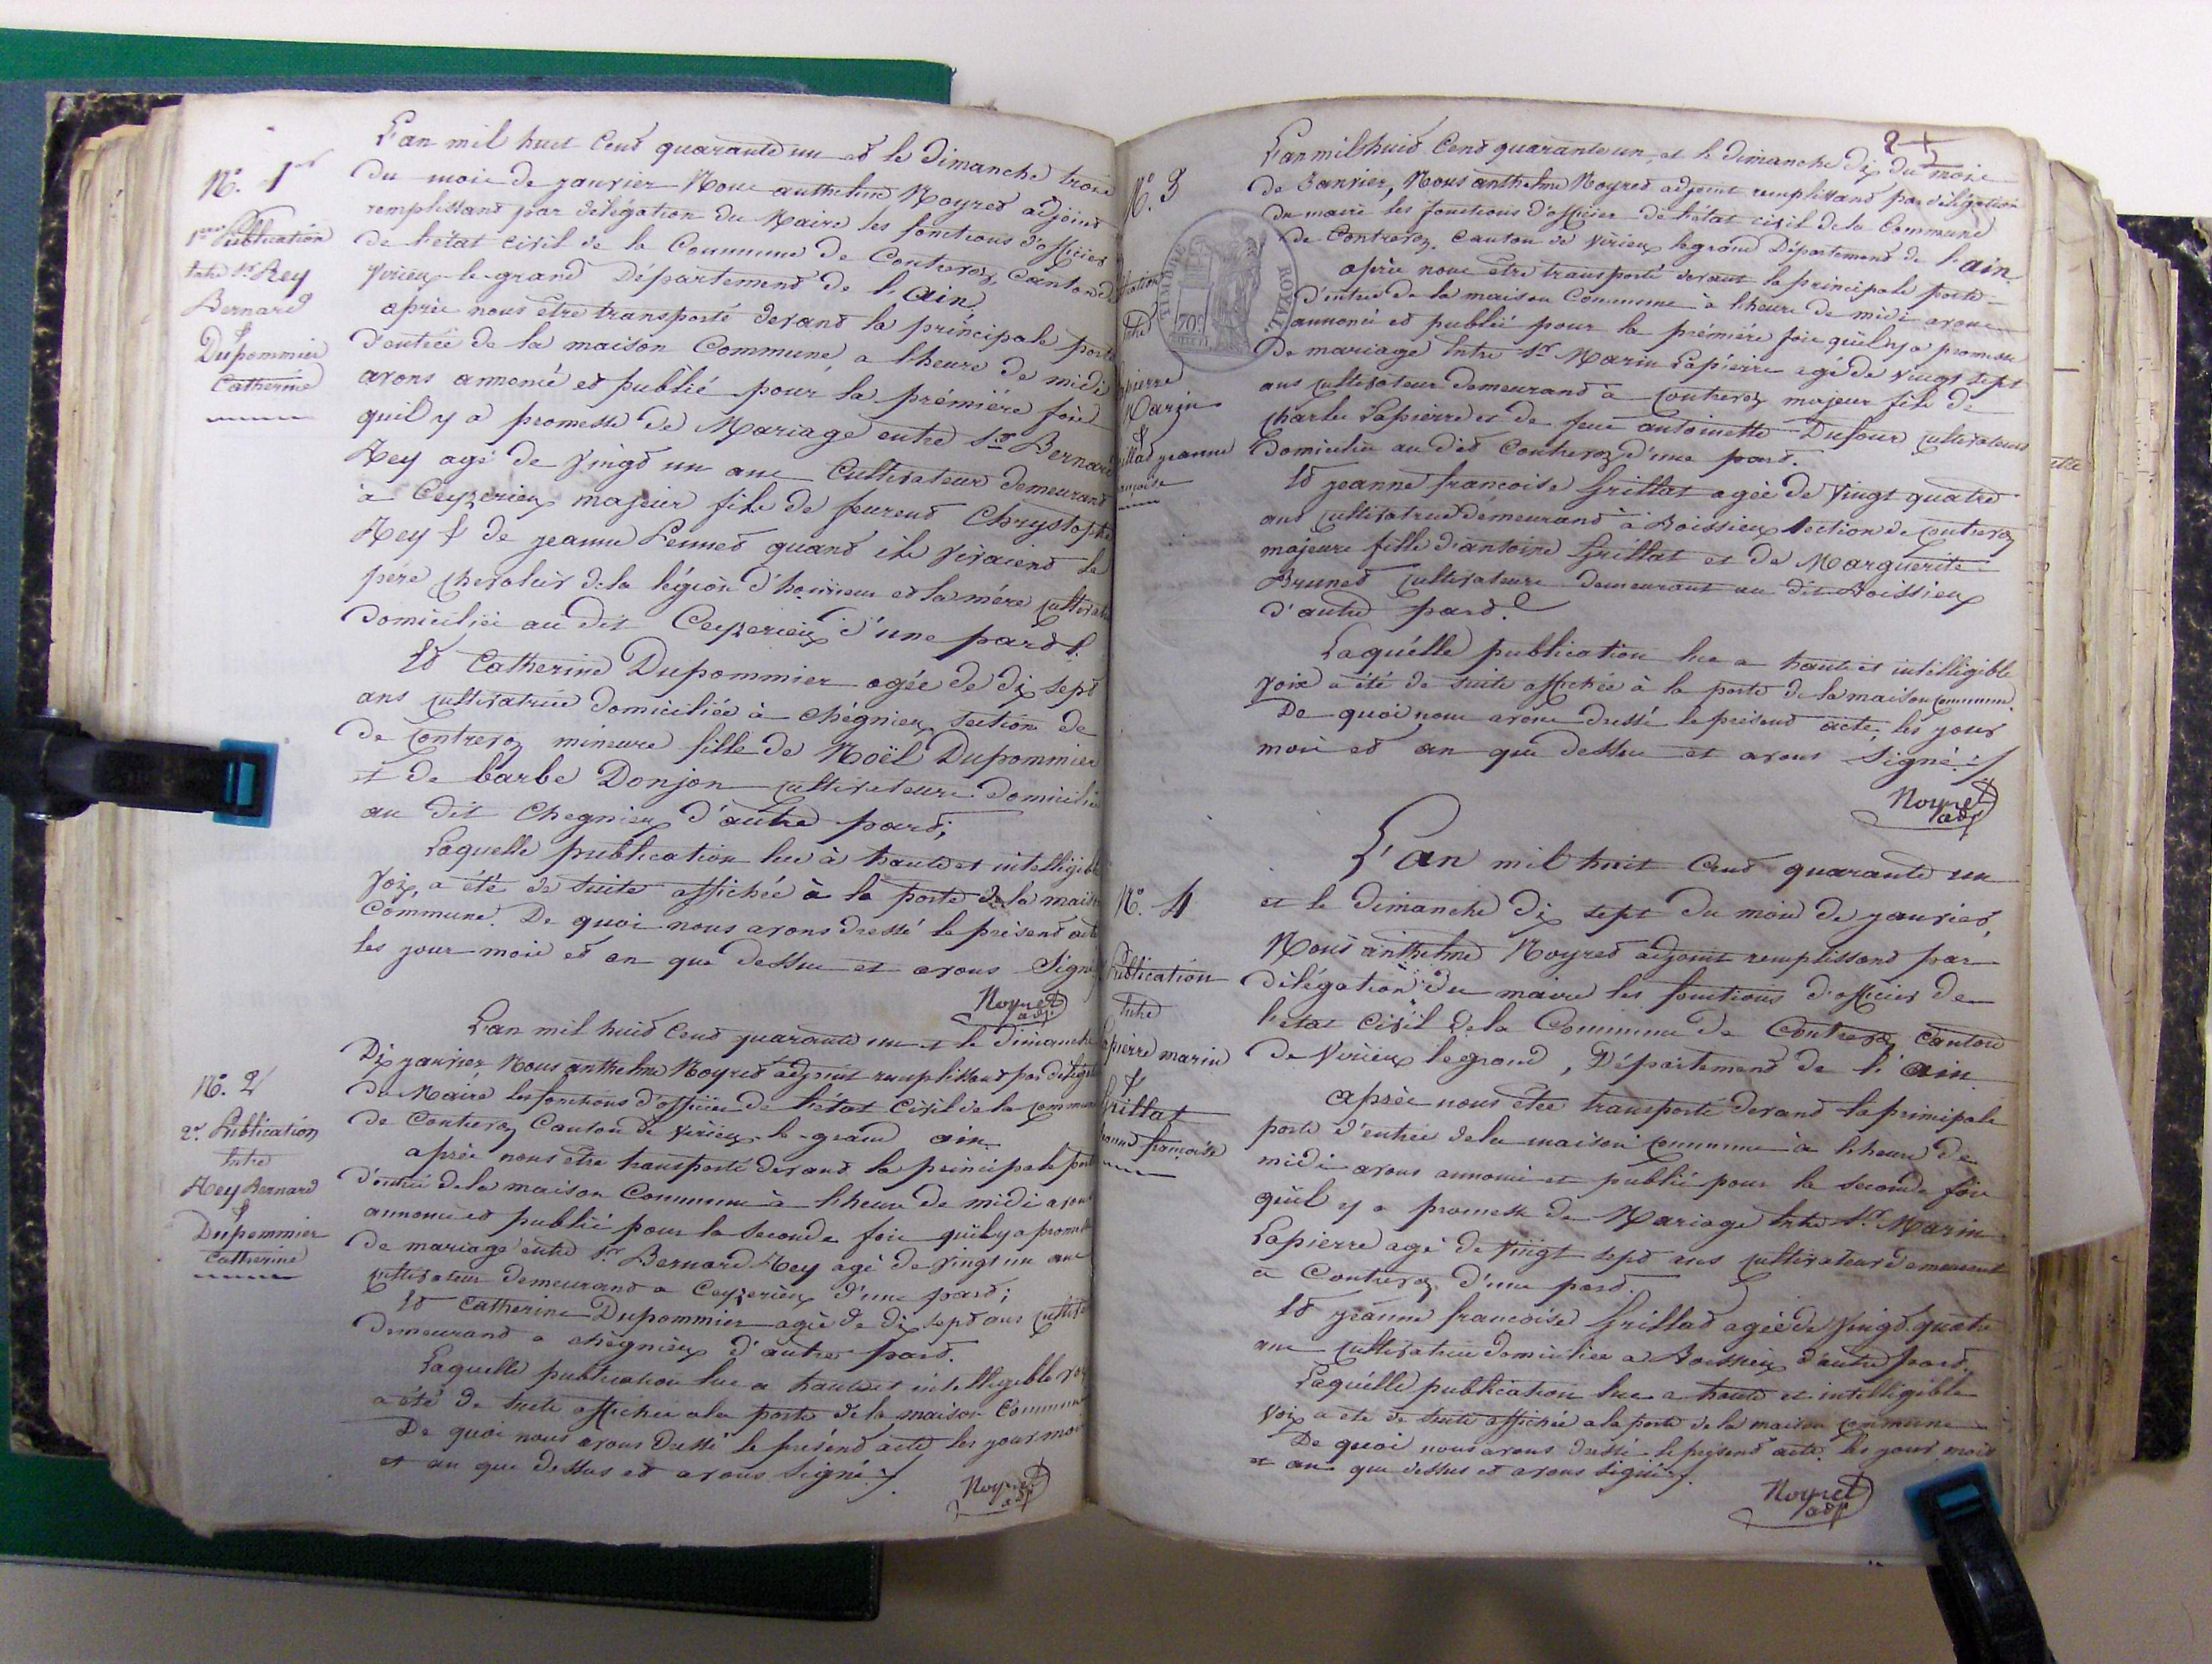 N°. 1er
1ère Publication
Entre Sr Rey
Bernard
&
Dupommier
Catherine
L'an mil huit Cent quarante un et le Dimanche trois
du mois de janvier Nous anthelme Noyret adjoint
remplissant par délégation du Maire les fonctions d'officier
de l'état civil de la Commune de Contrevoz, Canton de
Virieu-le-grand Département de l'ain
après nous être transporté devant la principale porte
d'entrée de la maison Commune, a l'heure de midi
avons annoncé et publié pour la première fois
quil y a promesse de Mariage entre Sr Bernard
Rey agé de vingt un ans Cultivateur demeurant
à Ceyzerieu majeur fils de feurent Chrystophe
Rey & de jeanne Pennet quand ils vivaient le
père chevalier de la légion d'honneur et la mère
domiciliés au dit Ceyzerieu d'une part.
Et Catherine Dupommier agée de dix sept
ans cultivatrice domiciliée à chégnieu section de
de Contrevoz mineure fille de Noël Dupommier
et de barbe Donjon cultivateurs domiciliés
au dit chegnieu d'autre part;
Laquelle publication lue à haute et intelligible
voix, a été de suite affichée à la porte de la maison
Commune. De quoi nous avons dressé le présent acte
les jour mois et an que dessus et avons Signé
Noyret
adj.
N°. 2
2e. Publication
Entre
Rey Bernard
&
Dupommier
Catherine
L'an mil huit Cent quarante un et le Dimanche
Dix janvier Nous anthelme Noyret adjoint remplissant par
du Maire les fonctions d'officier de l'état Civil de la commune
de Contrevoz Canton de Virieu-le-grand ain
après nous être transporté devant la principale porte
d'entrée de la maison Commune à l'heure de midi avons
annoncé et publié pour la seconde fois quil y a promesse
de mariage entre Sr Bernard Rey agé de vingt un ans
cultivateur demeurant a Ceyzerieu d'une part;
Et Catherine Dupommier agée de dix sept ans
demeurant a chegnieu d'autre part.
Laquelle publication lue a haute et intelligible voix
a été de suite affichée a la porte de la maison Commune
De quoi nous avons dressé le présent acte les jour mois
et an que dessus et avons signé./.
Noyret
adj
2
N°. 3
ROYAL
70c
Entre
Lapierre
Marin
&
Grillat jeanne
L'an mil huit Cent quarante un, et le dimanche dix du mois
de Janvier, Nous anthelme Noyret adjoint remplissant par délégation
du maire les fonctions d'officier de l'état civil de la Commune
de Contrevoz, Canton de Virieu le grand Département de l'ain
après nous être transporté devant la principale porte
d'entrée de la maison Commune à l'heure de midi avons
annoncé et publié pour la première fois quil y a promesse
de mariage Entre Sr Marin Lapierre agé de vingt sept
ans cultivateur demeurant à Contrevoz majeur fils de
charles Lapierre et de feue antoinette Dufour cultivateurs
domiciliés au dit Contrevoz d'une part.
Et jeanne françoise Grillat agée de vingt quatre
ans cultivatrice demeurant à Boissieu section de Contrevoz
majeure fille d'antoine Grillat et de Marguerite
Brunet cultivateurs demeurant au dit Boissieu
d'autre part.
Laquelle publication lue a haute et intelligible
voix a été de suite affichée à la porte de la maison commune.
De quoi nous avons dressé le présent acte, les jour
mois et an que dessus et avons Signé./
Noyret
adj
N°. 4
Publication
Entre
Lapierre marin
&
Grillat
jeanne françoise
L'an mil huit Cent quarante un
et le dimanche dix sept du mois de janvier,
Nous anthelme Noyret adjoint remplissant par
délégation du maire les fonctions d'officier de
l'état Civil de la Commune de Contrevoz Canton
de Virieu le grand, Département de l'ain
après nous être transporté devant la principale
porte d'entrée de la maison Commune à l'heure de
midi avons annoncé et publié pour la seconde fois
qu'il y a promesse de Mariage Entre Sr. Marin
Lapierre agé de vingt sept ans cultivateur demeurant
a Contrevoz d'une part.
Et jeanne françoise Grillat agée de vingt quatre
ans cultivatrice domiciliée a Boissieu d'autre part.
Laquelle publication lue a haute et intelligible
voix a été de suite affichée a la porte de la maison commune
De quoi nous avons dressé le présent acte, les jour mois
et an que dessus et avons signé./.
Noyret
adj